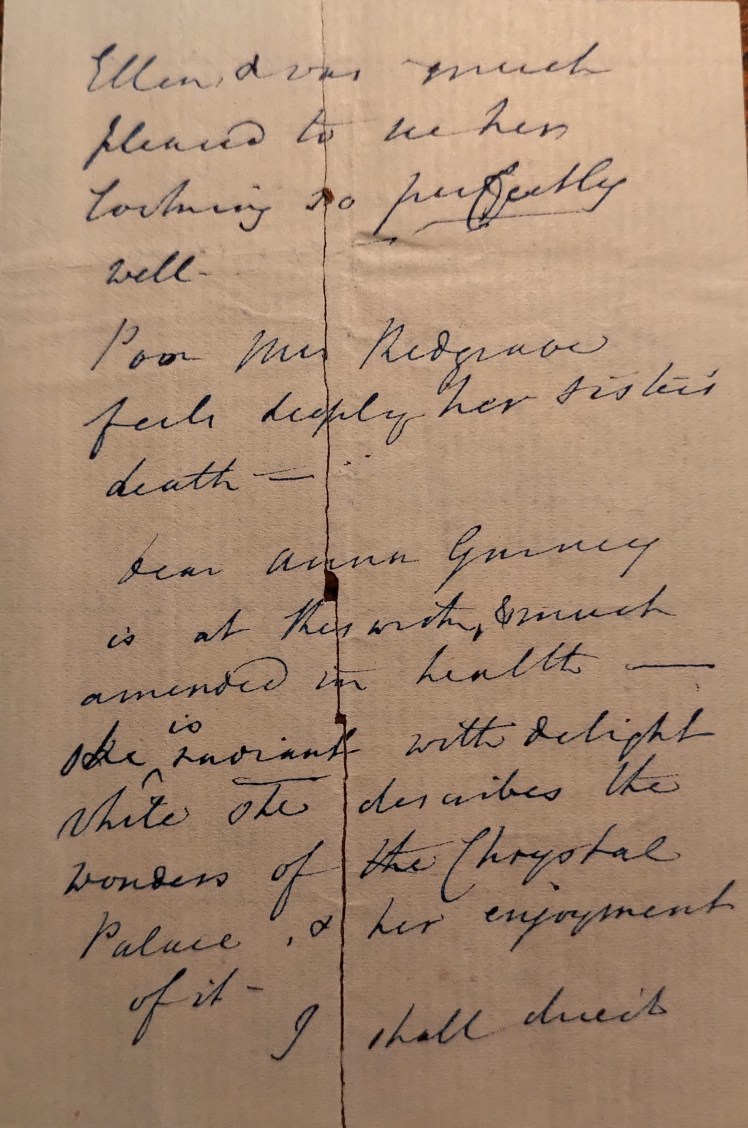 Ellen, & was much
pleased to see her
looking so perfectly
well -
Poor Mrs Redgrave
feels deeply her sister's
death —
Dear Anna Gurney
is at Keswick, & much
amended in health —
She is radiant with delight
while she describes the
wonders of the Chrystal
Palace, & her enjoyment
of it -
I shall direct